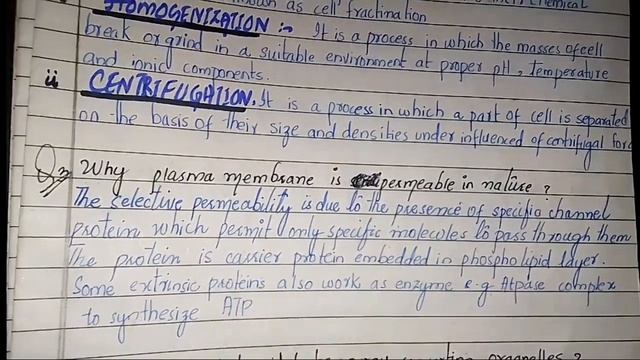 known as cell fractination
HOMOGENIZATION :- It is a process in which the masses of cell
break or grind in a suitable environment at proper pH, temperature
and ionic components.
ii CENTRIFUGATION. It is a process in which a part of cell is separated
on the basis of their size and densities under influenced of centrifugal forc
Q3 Why plasma membrane is permeable in nature ?
The selective permeability is due to the presence of specific channel
protein which permit only specific molecules to pass through them
The protein is carrier protein embedded in phospholipid layer.
Some extrinsic proteins also work as enzyme e.g Atpase complex
to synthesize ATP
organelles ?